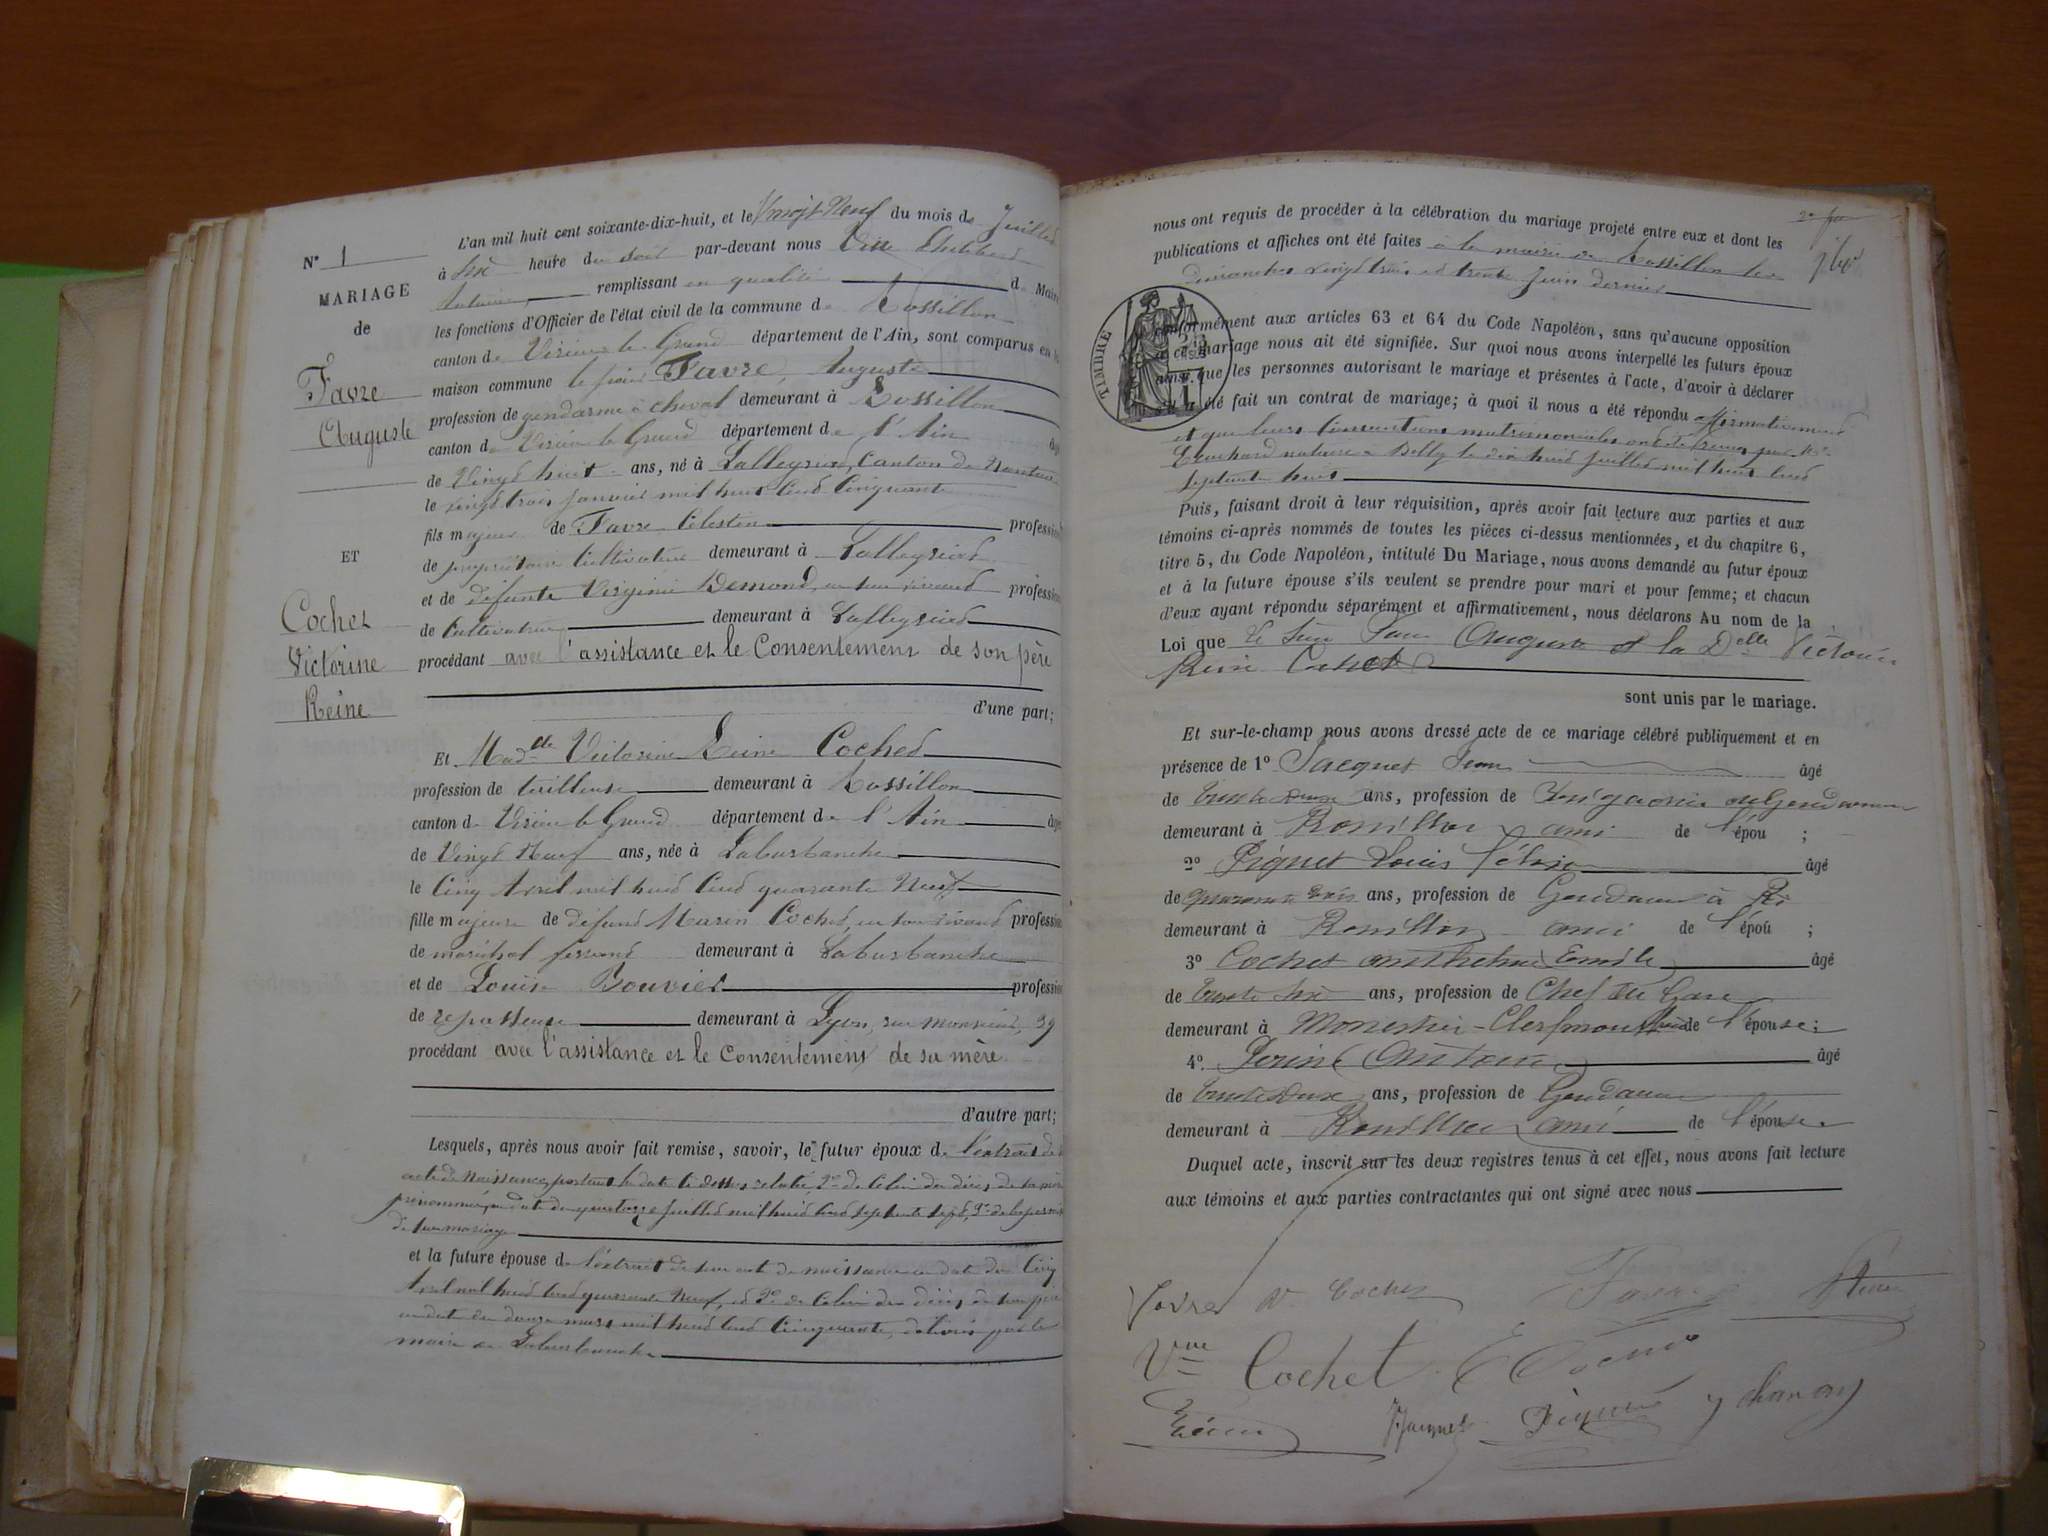 N° 1
MARIAGE
de
Favre
Auguste
ET
Cochet
Victorine
Reine
L'an mil huit cent soixante-dix-huit, et le Vingt Neuf du mois de Juillet
à six heure du soir par-devant nous
Antoine remplissant en qualité de Maire
les fonctions d'Officier de l'état civil de la commune de Rossillon
canton de Virieu le Grand département de l'Ain, sont comparus en la
maison commune le sieur Favre Auguste
profession de gendarme à cheval demeurant à Rossillon
canton de Virieu le Grand département de l'Ain âgé
de Vingt huit ans, né à Lalleyriat, Canton de Nantua
le vingt trois janvier mil huit cent cinquante
fils majeur de Favre Célestin profession
de propriétaire Cultivateur demeurant à Lalleyriat
et de défunte Virginie Demond, en son vivant profession
de Cultivatrice demeurant à Lalleyriat
procédant avec l'assistance et le Consentement de son père
d'une part;
Et Mad.elle Victorine Reine Cochet
profession de tailleuse demeurant à Rossillon
canton de Virieu le Grand département de l'Ain âgée
de Vingt Neuf ans, née à Laburbanche
le Cinq Avril mil huit Cent quarante Neuf
fille majeure de défunt Marin Cochet, en son vivant profession
de maréchal ferrant demeurant à Laburbanche
et de Louise Bouvier profession
de repasseuse demeurant à Lyon, rue Monsieur, 39
procédant avec l'assistance et le Consentement de sa mère
d'autre part;
Lesquels, après nous avoir fait remise, savoir, le futur époux de l'extrait de son
acte de Naissance portant la date ci dessus relatée, 2° de celui du décès de sa mère
prénommée, en date du quatorze juillet mil huit cent septante sept, 3° de la permission
de son mariage
et la future épouse de l'extrait de son acte de naissance en date du Cinq
Avril mil huit Cent quarante Neuf, et 2° de Celui du décès de son père
en date du douze mars mil huit cent Cinquante, délivrés par le
maire de Laburbanche
nous ont requis de procéder à la célébration du mariage projeté entre eux et dont les
publications et affiches ont été faites à la mairie de Rossillon les
dimanches vingt trois et trente Juin dernier
TIMBRE
conformément aux articles 63 et 64 du Code Napoléon, sans qu'aucune opposition
à ce mariage nous ait été signifiée. Sur quoi nous avons interpellé les futurs époux
ainsi que les personnes autorisant le mariage et présentes à l'acte, d'avoir à déclarer
s'il a été fait un contrat de mariage; à quoi il nous a été répondu affirmativement
et que leurs Conventions matrimoniales ont été reçues par Me
notaire à Belley le dix huit juillet mil huit cent
septante huit
Puis, faisant droit à leur réquisition, après avoir fait lecture aux parties et aux
témoins ci-après nommés de toutes les pièces ci-dessus mentionnées, et du chapitre 6,
titre 5, du Code Napoléon, intitulé Du Mariage, nous avons demandé au futur époux
et à la future épouse s'ils veulent se prendre pour mari et pour femme; et chacun
d'eux ayant répondu séparément et affirmativement, nous déclarons Au nom de la
Loi que le Sieur Favre Auguste et la Delle Victorine
Reine Cochet
sont unis par le mariage.
Et sur-le-champ nous avons dressé acte de ce mariage célébré publiquement et en
présence de 1° Jacquet Jean âgé
de trente deux ans, profession de Brigadier de Gendarmerie
demeurant à Rossillon ami de l'épou ;
2° Piquet Louis âgé
de quarante trois ans, profession de Gendarme à
demeurant à Rossillon ami de l'épou ;
3° Cochet Emile âgé
de trente six ans, profession de Chef de Gare
demeurant à Monestier-Clermont de l'épouse;
4° Antoine âgé
de trente deux ans, profession de Gendarme
demeurant à Rossillon ami de l'épouse
Duquel acte, inscrit sur les deux registres tenus à cet effet, nous avons fait lecture
aux témoins et aux parties contractantes qui ont signé avec nous
Favre V. Cochet Favre
Vve Cochet E Cochet
Jacquet Piquet